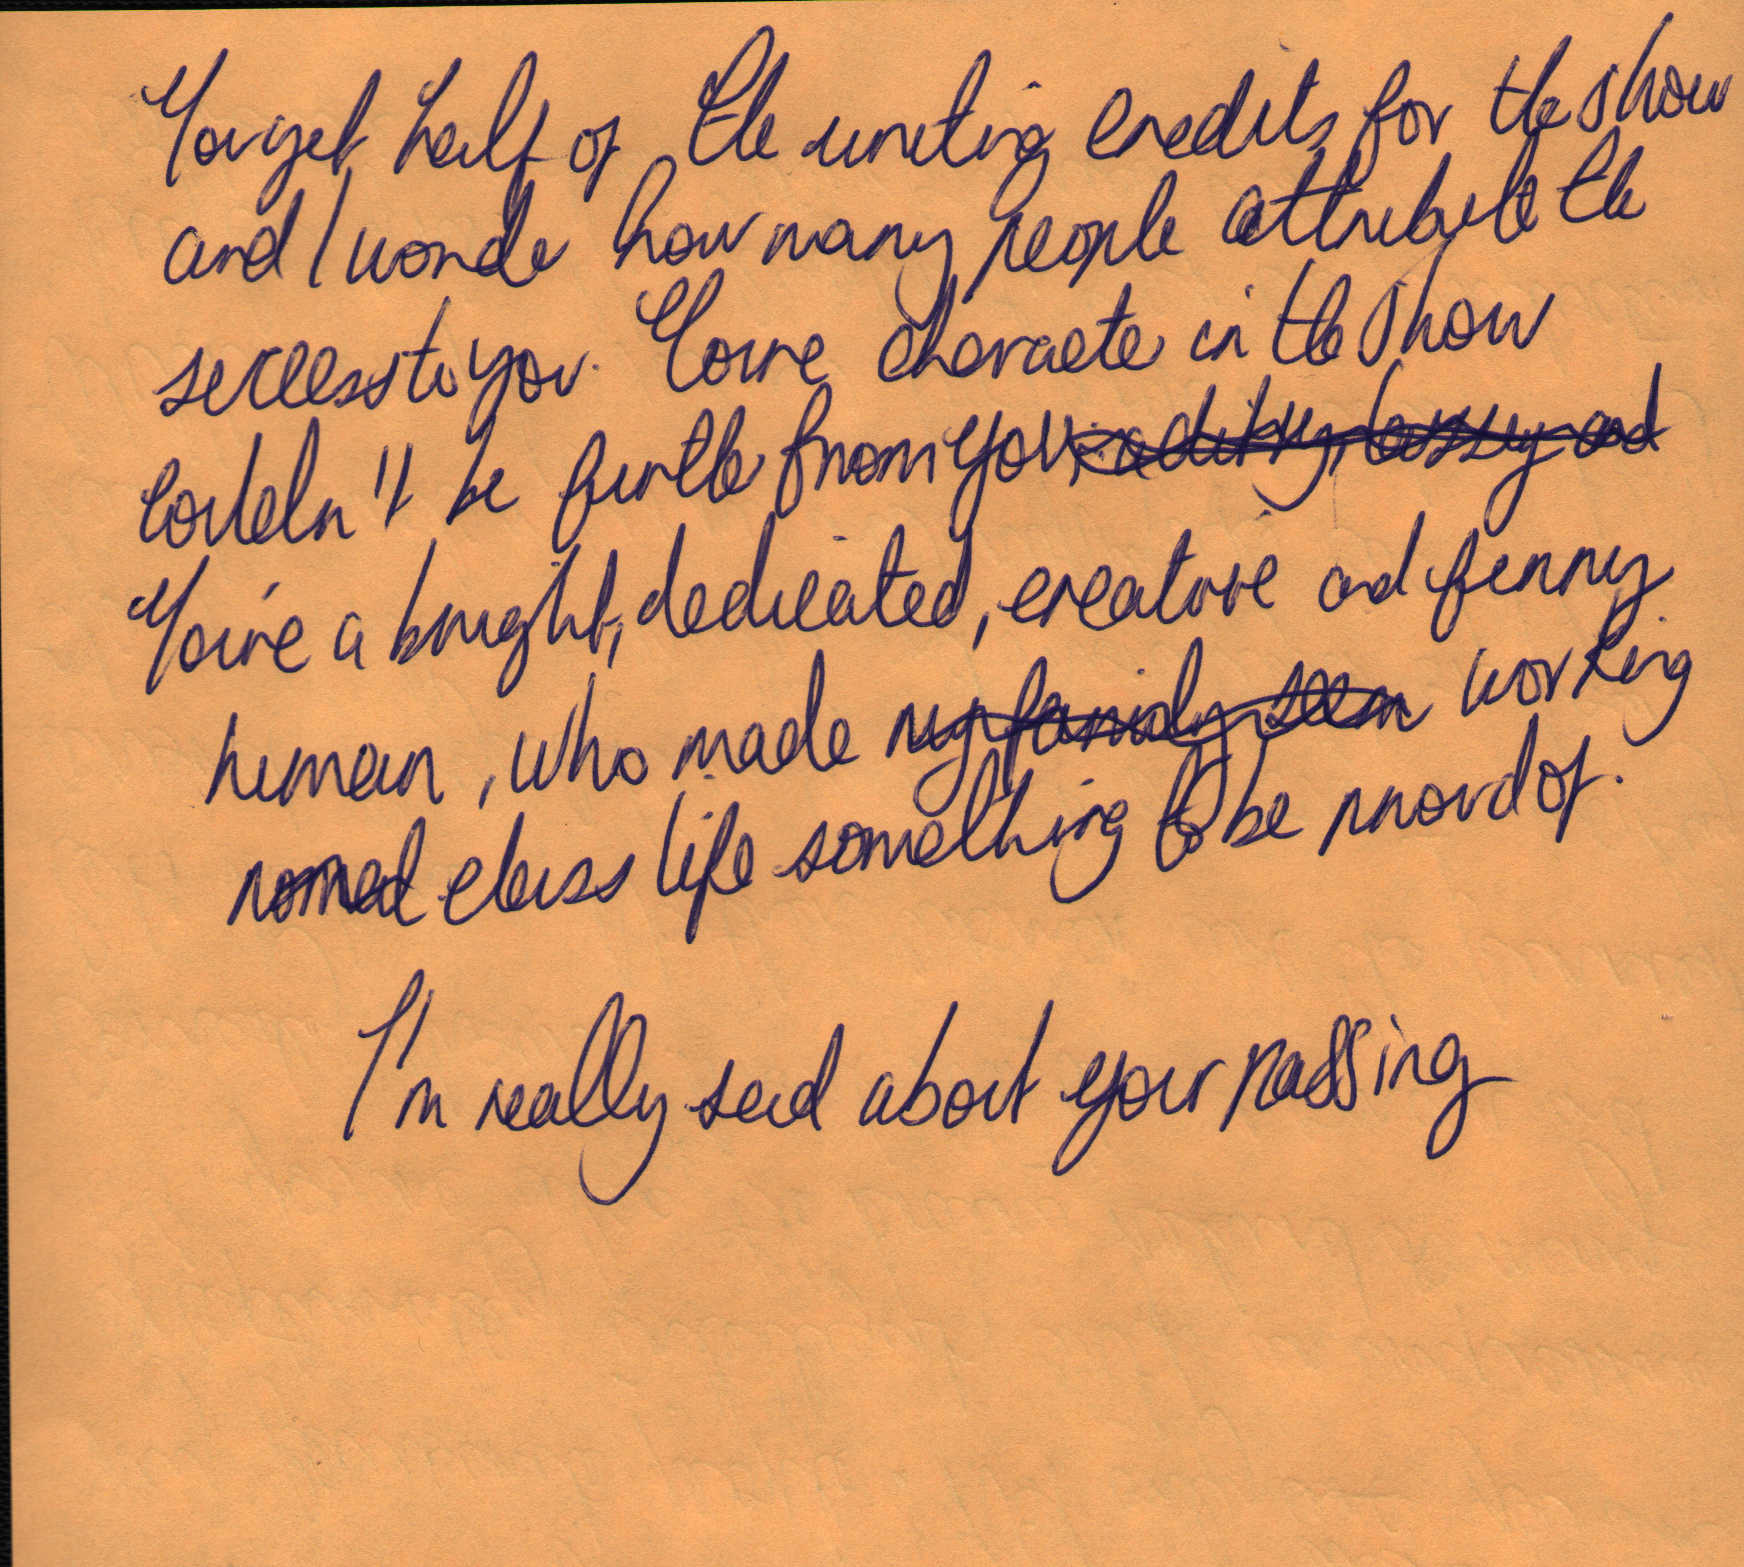 You get half of the writing credits for the show
and I wonder how many people attribute the
success to you. Your character in the show
couldn't be further from you
You're a bright, dedicated, creative and funny
human, who made my family seem working
normal class life something to be proud of.
I'm really sad about your passing